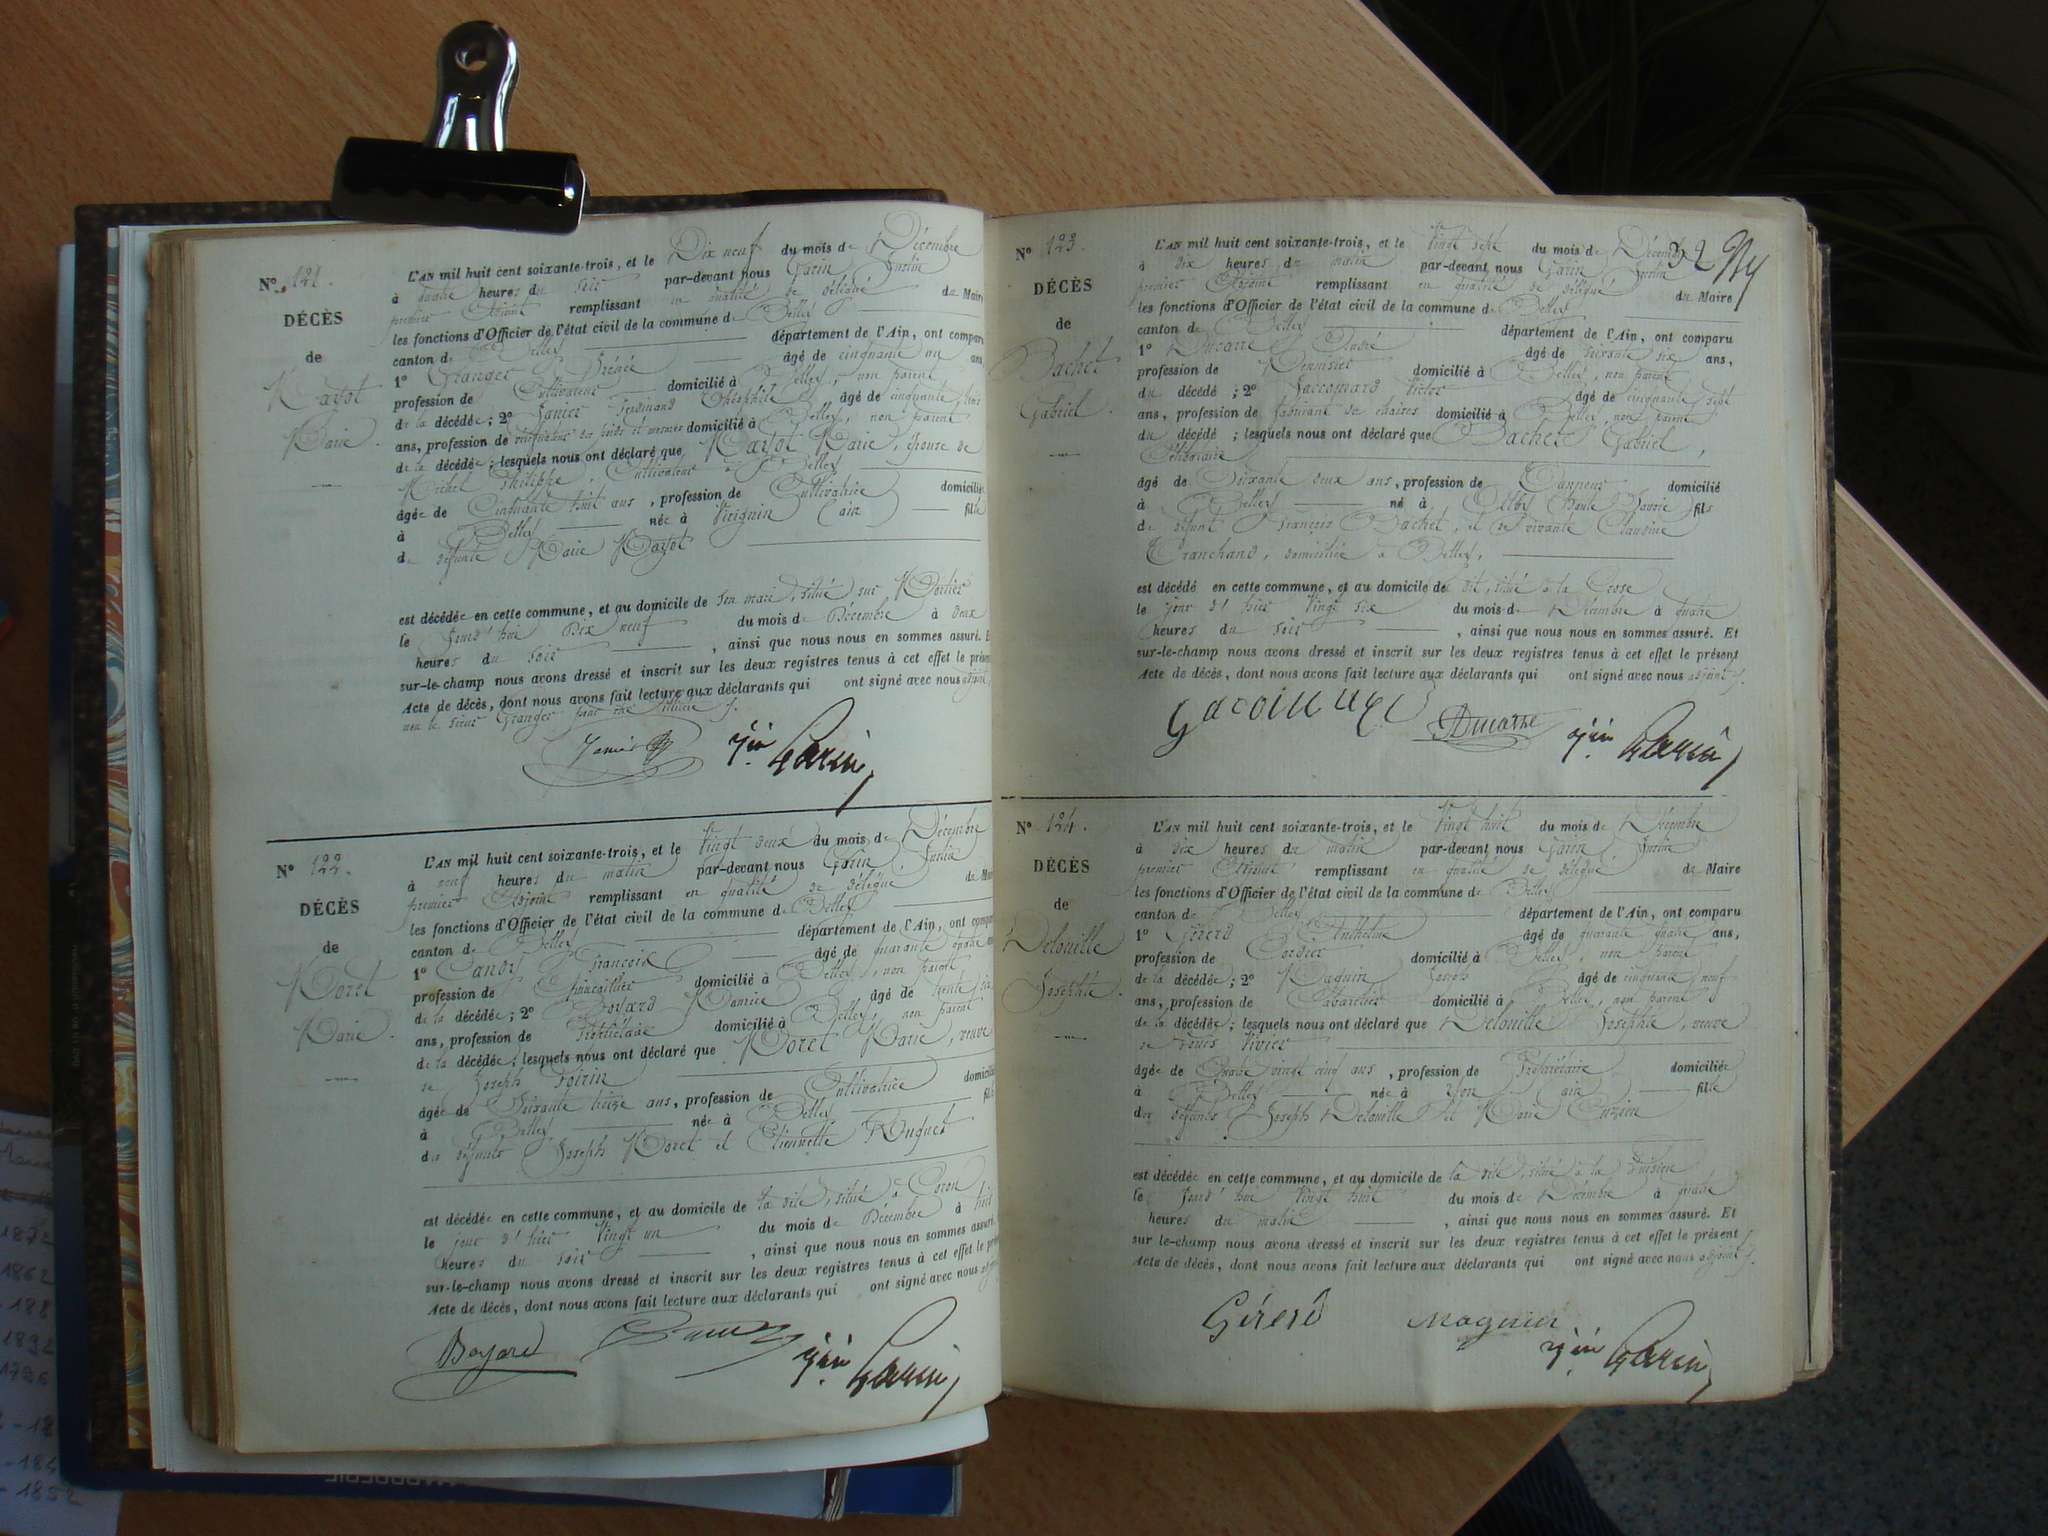 N° 121.
DÉCÈS
de
Mayot
Marie.
L'AN mil huit cent soixante-trois, et le Dix neuf du mois de Décembre
à quatre heures du soir par-devant nous Garin Justin
premier Adjoint remplissant en qualité de délégué du Maire
les fonctions d'Officier de l'état civil de la commune de Belley
canton de Belley département de l'Ain, ont comparu
1° Granger âgé de cinquante un ans,
profession de Cultivateur domicilié à Belley, non parent
de la décédée; 2° Janier Ferdinand Théophile âgé de cinquante trois
ans, profession de vérificateur des poids et mesures domicilié à Belley, non parent
de la décédée; lesquels nous ont déclaré que Mayot Marie, épouse de
Michel Philippe, Cultivateur à Belley
âgée de Cinquante huit ans, profession de Cultivatrice domiciliée
à Belley née à Virignin (ain) fille
de défunte Marie Mayot
est décédée en cette commune, et au domicile de son mari, situé sur
le Jourd'hui Dix neuf du mois de Décembre à deux
heures du soir, ainsi que nous nous en sommes assuré. Et
sur-le-champ nous avons dressé et inscrit sur les deux registres tenus à cet effet le présent
Acte de décès, dont nous avons fait lecture aux déclarants qui ont signé avec nous adjoint,
non le sieur Granger pour être illitéré
Janier
Jin Garin
N° 122.
DÉCÈS
de
Moret
Marie.
L'AN mil huit cent soixante-trois, et le Vingt deux du mois de Décembre
à neuf heures du matin par-devant nous Garin, Justin
premier Adjoint remplissant en qualité de délégué du Maire
les fonctions d'Officier de l'état civil de la commune de Belley
canton de Belley département de l'Ain, ont comparu
1° François âgé de quarante quatre ans
profession de Quincaillier domicilié à Belley, non parent
de la décédée; 2° Boyard âgé de trente six
ans, profession de Propriétaire domicilié à Belley non parent
de la décédée; lesquels nous ont déclaré que Moret Marie, veuve
de Joseph Poirin
âgée de Soixante treize ans, profession de Cultivatrice domiciliée
à Belley née à Belley fille
des défunts Joseph Moret et Etiennette Muguet
est décédée en cette commune, et au domicile de la dite, situé à Coron
le jour d'hier Vingt un du mois de Décembre à huit
heures du soir, ainsi que nous nous en sommes assuré.
sur-le-champ nous avons dressé et inscrit sur les deux registres tenus à cet effet le
Acte de décès, dont nous avons fait lecture aux déclarants qui ont signé avec nous
Boyard
Jin Garin
32
N° 123.
DÉCÈS
de
Bachet
Gabriel.
L'AN mil huit cent soixante-trois, et le Vingt sept du mois de Décembre
à dix heures du matin par-devant nous Garin Justin
premier Adjoint remplissant en qualité de délégué du Maire
les fonctions d'Officier de l'état civil de la commune de Belley
canton de Belley département de l'Ain, ont comparu
1° Ducarre André âgé de soixante six ans,
profession de Menuisier domicilié à Belley, non parent
du décédé; 2° Jaccomard Victor âgé de cinquante sept
ans, profession de fabricant de chaises domicilié à Belley, non parent
du décédé; lesquels nous ont déclaré que Bachet Gabriel,
Célibataire
âgé de Soixante deux ans, profession de Tanneur domicilié
à Belley né à Haute Savoie fils
de défunt François Bachet, et de vivante Claudine
Tranchand, domiciliée à Belley,
est décédé en cette commune, et au domicile de dit, situé à la
le jour d'hier Vingt six du mois de Décembre à quatre
heures du soir, ainsi que nous nous en sommes assuré. Et
sur-le-champ nous avons dressé et inscrit sur les deux registres tenus à cet effet le présent
Acte de décès, dont nous avons fait lecture aux déclarants qui ont signé avec nous adjoint
Ducarre
Jin Garin
N° 124.
DÉCÈS
de
Delouille
Josephte.
L'AN mil huit cent soixante-trois, et le Vingt huit du mois de Décembre
à dix heures du matin par-devant nous Garin, Justin
premier Adjoint remplissant en qualité de délégué du Maire
les fonctions d'Officier de l'état civil de la commune de Belley
canton de Belley département de l'Ain, ont comparu
1° Gérerd Anthelme âgé de quarante quatre ans,
profession de Cordier domicilié à Belley, non parent
de la décédée; 2° Magnin Joseph âgé de cinquante neuf
ans, profession de Cabaretier domicilié à Belley, non parent
de la décédée; lesquels nous ont déclaré que Delouille Josephte, veuve
de Louis Vivier
âgée de Quatre vingt cinq ans, profession de Propriétaire domiciliée
à Belley née à ain fille
des défunts Joseph Delouille et Marie
est décédée en cette commune, et au domicile de la dite, situé à la
le Jourd'hui Vingt huit du mois de Décembre à quatre
heures du matin, ainsi que nous nous en sommes assuré. Et
sur le-champ nous avons dressé et inscrit sur les deux registres tenus à cet effet le présent
Acte de décès, dont nous avons fait lecture aux déclarants qui ont signé avec nous adjoint
Gérerd
Magnin
Jin Garin
1862
1892
1796
1852